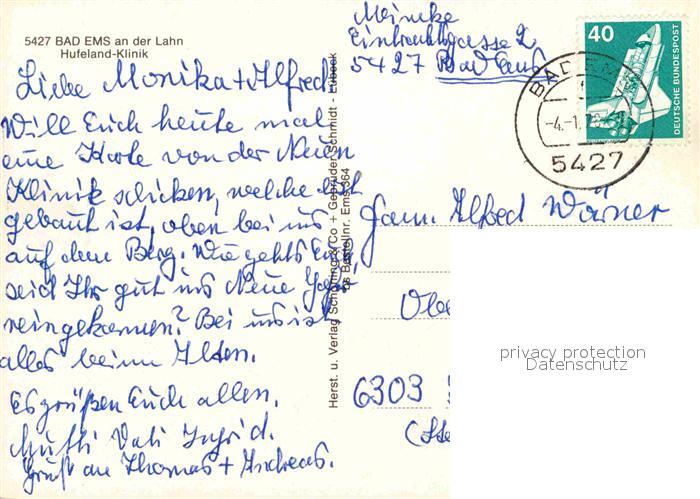 5427 BAD EMS an der Lahn
Hufeland-Klinik
Liebe Monika + Alfred
Will Euch heute mal
eine Karte von der Neuen
Klinik schicken, welche jetzt
gebaut ist, oben bei uns
auf dem Berg. Wie gehts Euch,
seid Ihr gut ins Neue Jahr
reingekommen? Bei uns ist
alles beim Alten.
Es grüßen Euch allen.
Mutti Vati Ingrid.
Gruß an Thomas + Andreas.
Herst. u. Verlag Schöning & Co + Gebrüder Schmidt - Lübeck
Bestellnr. Ems 364
Meincke
Eintrachtgasse 2
5427 Bad Ems
40
DEUTSCHE BUNDESPOST
BAD EMS
-4.-1.
5427
Fam. Alfred Wörner
Obe
6303
privacy protection
Datenschutz